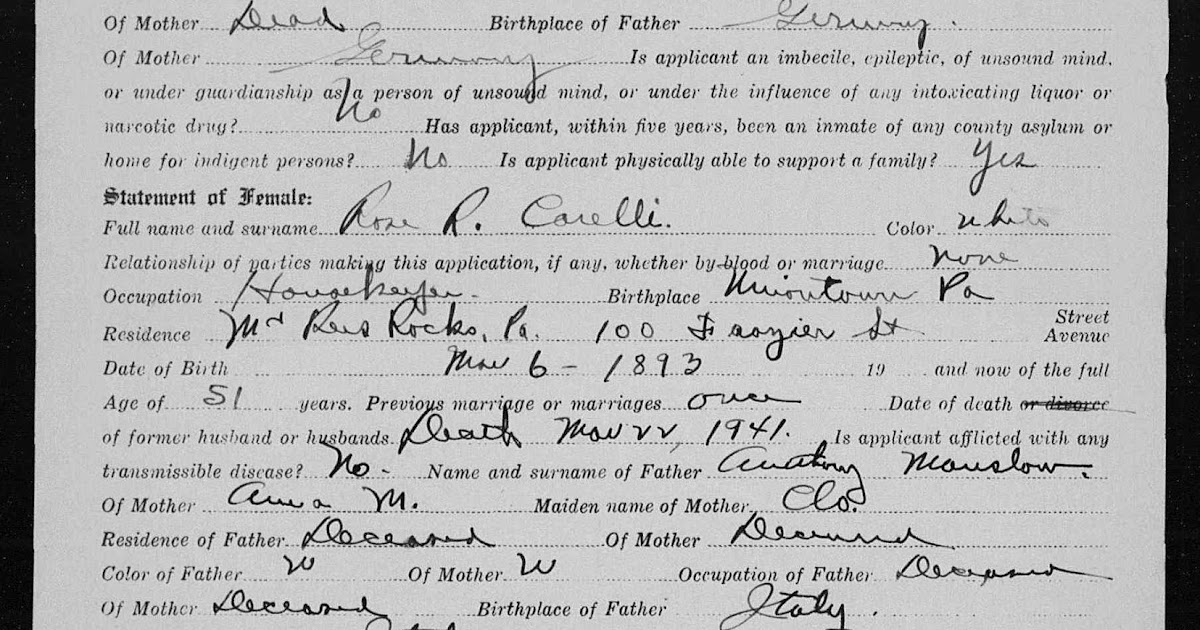 Of Mother Dead Birthplace of Father Germany.
Of Mother Germany Is applicant an imbecile, epileptic, of unsound mind.
or under guardianship as a person of unsound mind, or under the influence of any intoxicating liquor or
narcotic drug? No Has applicant, within five years, been an inmate of any county asylum or
home for indigent persons? No Is applicant physically able to support a family? Yes
Statement of Female:
Full name and surname Rose R. Carelli. Color white
Relationship of parties making this application, if any, whether by blood or marriage none
Occupation Housekeeper. Birthplace Uniontown Pa
Street
Residence Rocks, Pa. 100 Frazier St Avenue
Date of Birth 6 - 1893 19 and now of the full
Age of 51 years. Previous marriage or marriages once Date of death or divorce
of former husband or husbands. Death 22, 1941. Is applicant afflicted with any
transmissible disease? No - Name and surname of Father Anthony
Of Mother Anna M. Maiden name of Mother Clo.
Residence of Father Deceased Of Mother Deceased
Color of Father W Of Mother W Occupation of Father Deceased
Of Mother Deceased Birthplace of Father Italy.